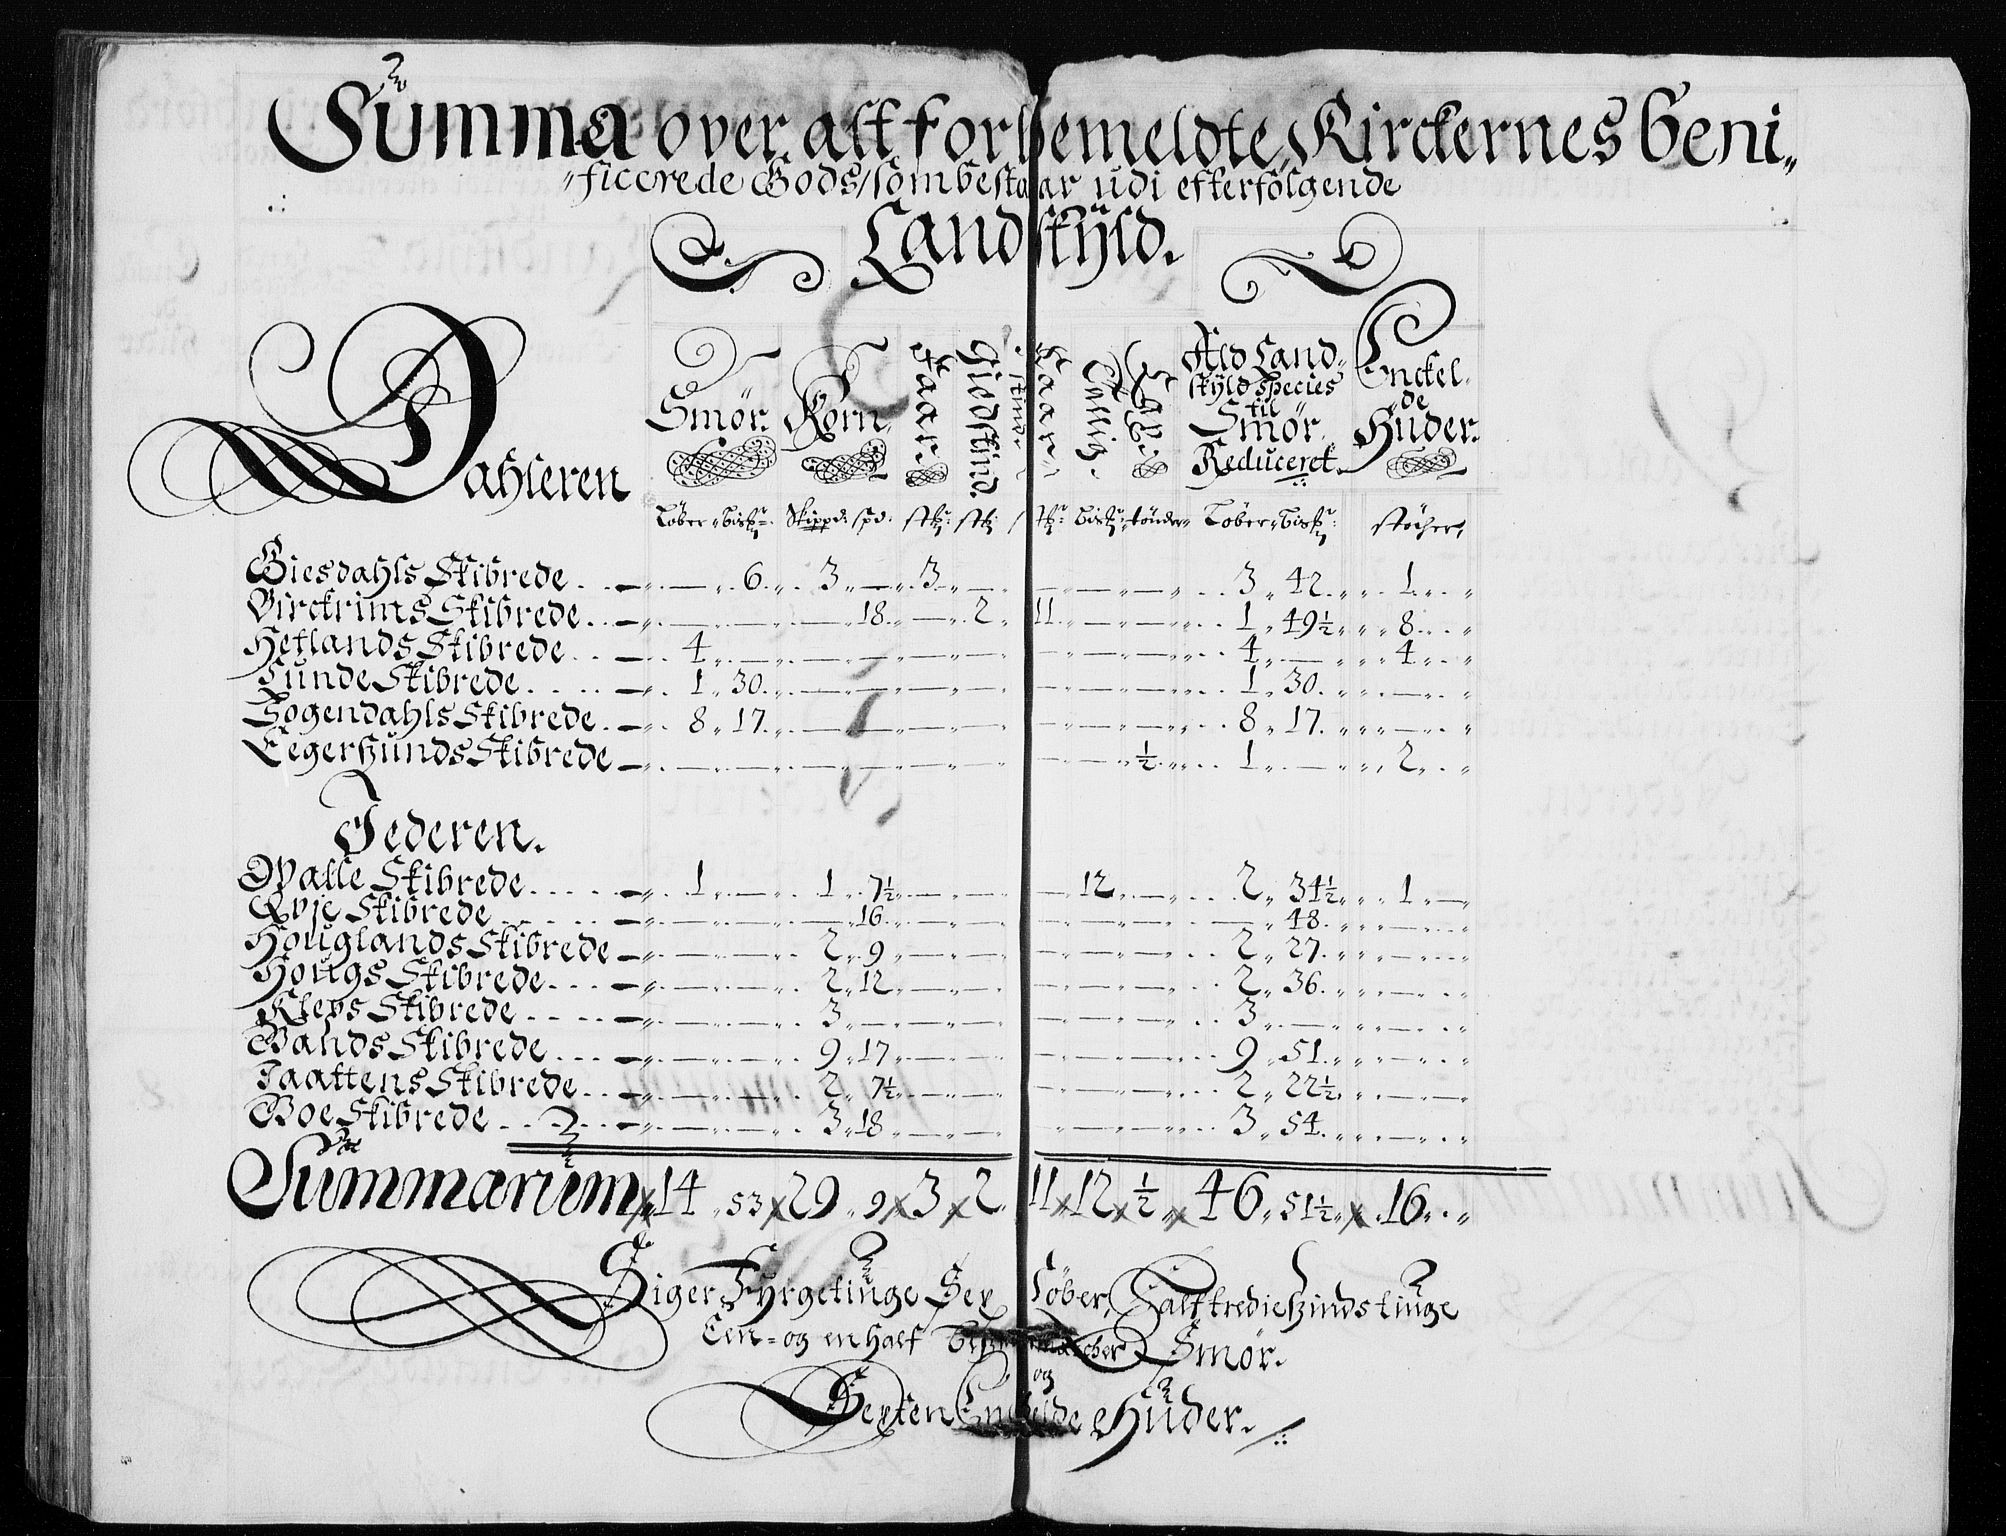 Summa over alt forbemeldte Kirckernes beni„
„ficerede Gods, som bestaar udi efterfölgende
Landskÿld.
Dahleren
Smör. Korn. Faar. Giedskind. Faar„ Ald Land„ skÿld species til Smör Reduceret. Enckel„ de Hüder.
Löber „ Bisk: Skippd: spd: stk: stk: stk: bisk: tönder Löber „ Bisk: stöcher
Giesdahls Skibrede . . — „ — „ 6 „ 3 „ — „ 3 „ — — „ — „ — „ 3 „ 42 „ 1 „
Birckrims Skibrede . . — „ — „ — „ — „ 18 „ — „ 2 „ 11 „ — „ — „ 1 „ 49½ „ 8 „
Hetlands Skibrede . . — „ 4 „ — „ — „ — „ — „ — — „ — „ — „ 4 „ — „ 4 „
Lunde Skibrede . . . — „ 1 „ 30 „ — „ — „ — „ — — „ — „ — „ 1 „ 30 „ — „
Sogendahls Skibrede . . — „ 8 „ 17 „ — „ — „ — „ — — „ — „ — „ 8 „ 17 „ — „
Eegersunds Skibrede — „ — „ — „ — „ — „ — „ — — „ — „ ½ „ 1 „ — „ 2 „
Jederen.
Qvalle Skibrede . . . . — „ 1 „ — „ 1 „ 7½ „ — „ — — „ 12 „ — „ 2 „ 34½ „ 1 „ —
Qvje Skibrede . . . . — „ — „ — „ — „ 16 „ — „ — — „ — „ — „ — „ 48 „ — „
Houglands Skibrede — „ — „ — „ 2 „ 9 „ — „ — — „ — „ — „ 2 „ 27 „ — „
Hougs Skibrede . . . — „ — „ — „ 2 „ 12 „ — „ — — „ — „ — „ 2 „ 36 „ — „
Kleps Skibrede . . . . — „ — „ — „ 3 „ — „ — „ — — „ — „ — „ 3 „ — „ — „
Vands Skibrede . . . — „ — „ — „ 9 „ 17 „ — „ — — „ — „ — „ 9 „ 51 „ — „
Jaattens Skibrede . . — „ — „ — „ 2 „ 7½ „ — „ — — „ — „ — „ 2 „ 22½ „ — „
Boe Skibrede . . . — „ — „ — „ 3 „ 18 „ — „ — — „ — „ — „ 3 „ 54 „ — „
Summarum „ 14 „ 53 × 29 „ 9 × 3 × 2 „ 11 × 12 × ½ „ × 46 „ 51½ „ × 16 „
Siger Fyrgetiuge Sex Löber, Halftrediesindstiuge
Een- og en half Bismermarcher Smör.
og
Sexten Enckelde Hüder.